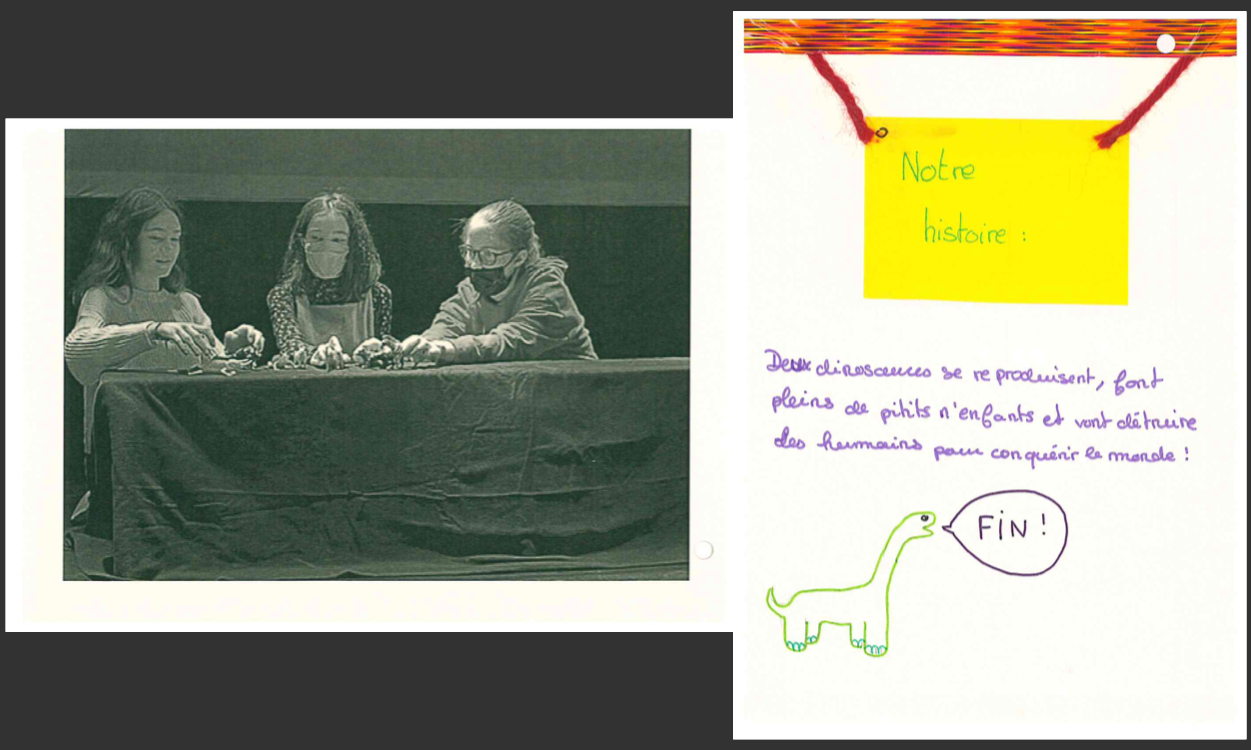 Notre
histoire :
Deux dinosaures se reproduisent, font
pleins de pitits n'enfants et vont détruire
des humains pour conquérir le monde !
FIN !